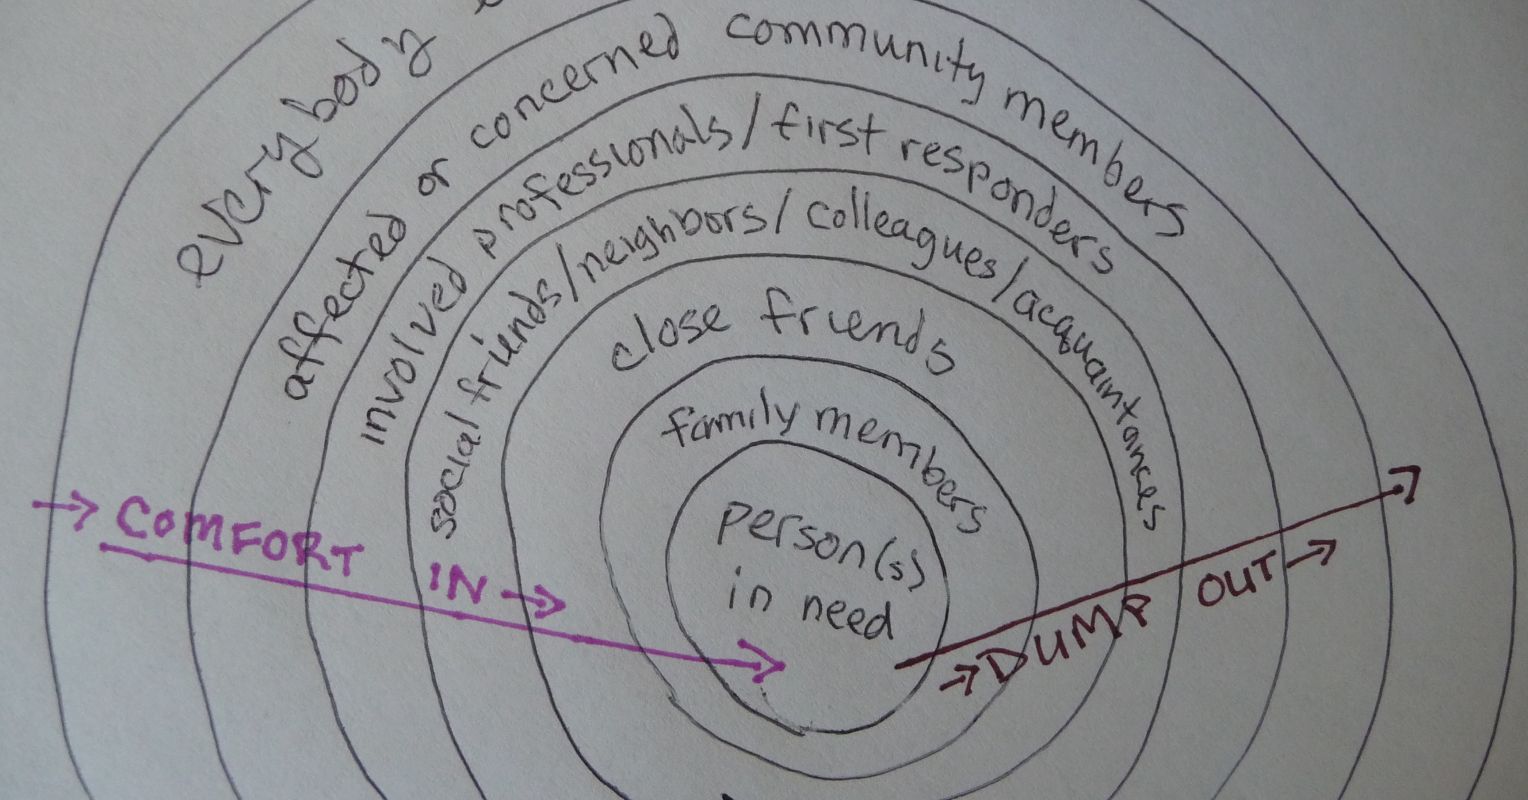 everybody
affected or concerned community members
involved professionals/first responders
social friends/neighbors/colleagues/acquaintances
close friends
family members
person(s)
in need
→ COMFORT IN →
→ DUMP OUT →